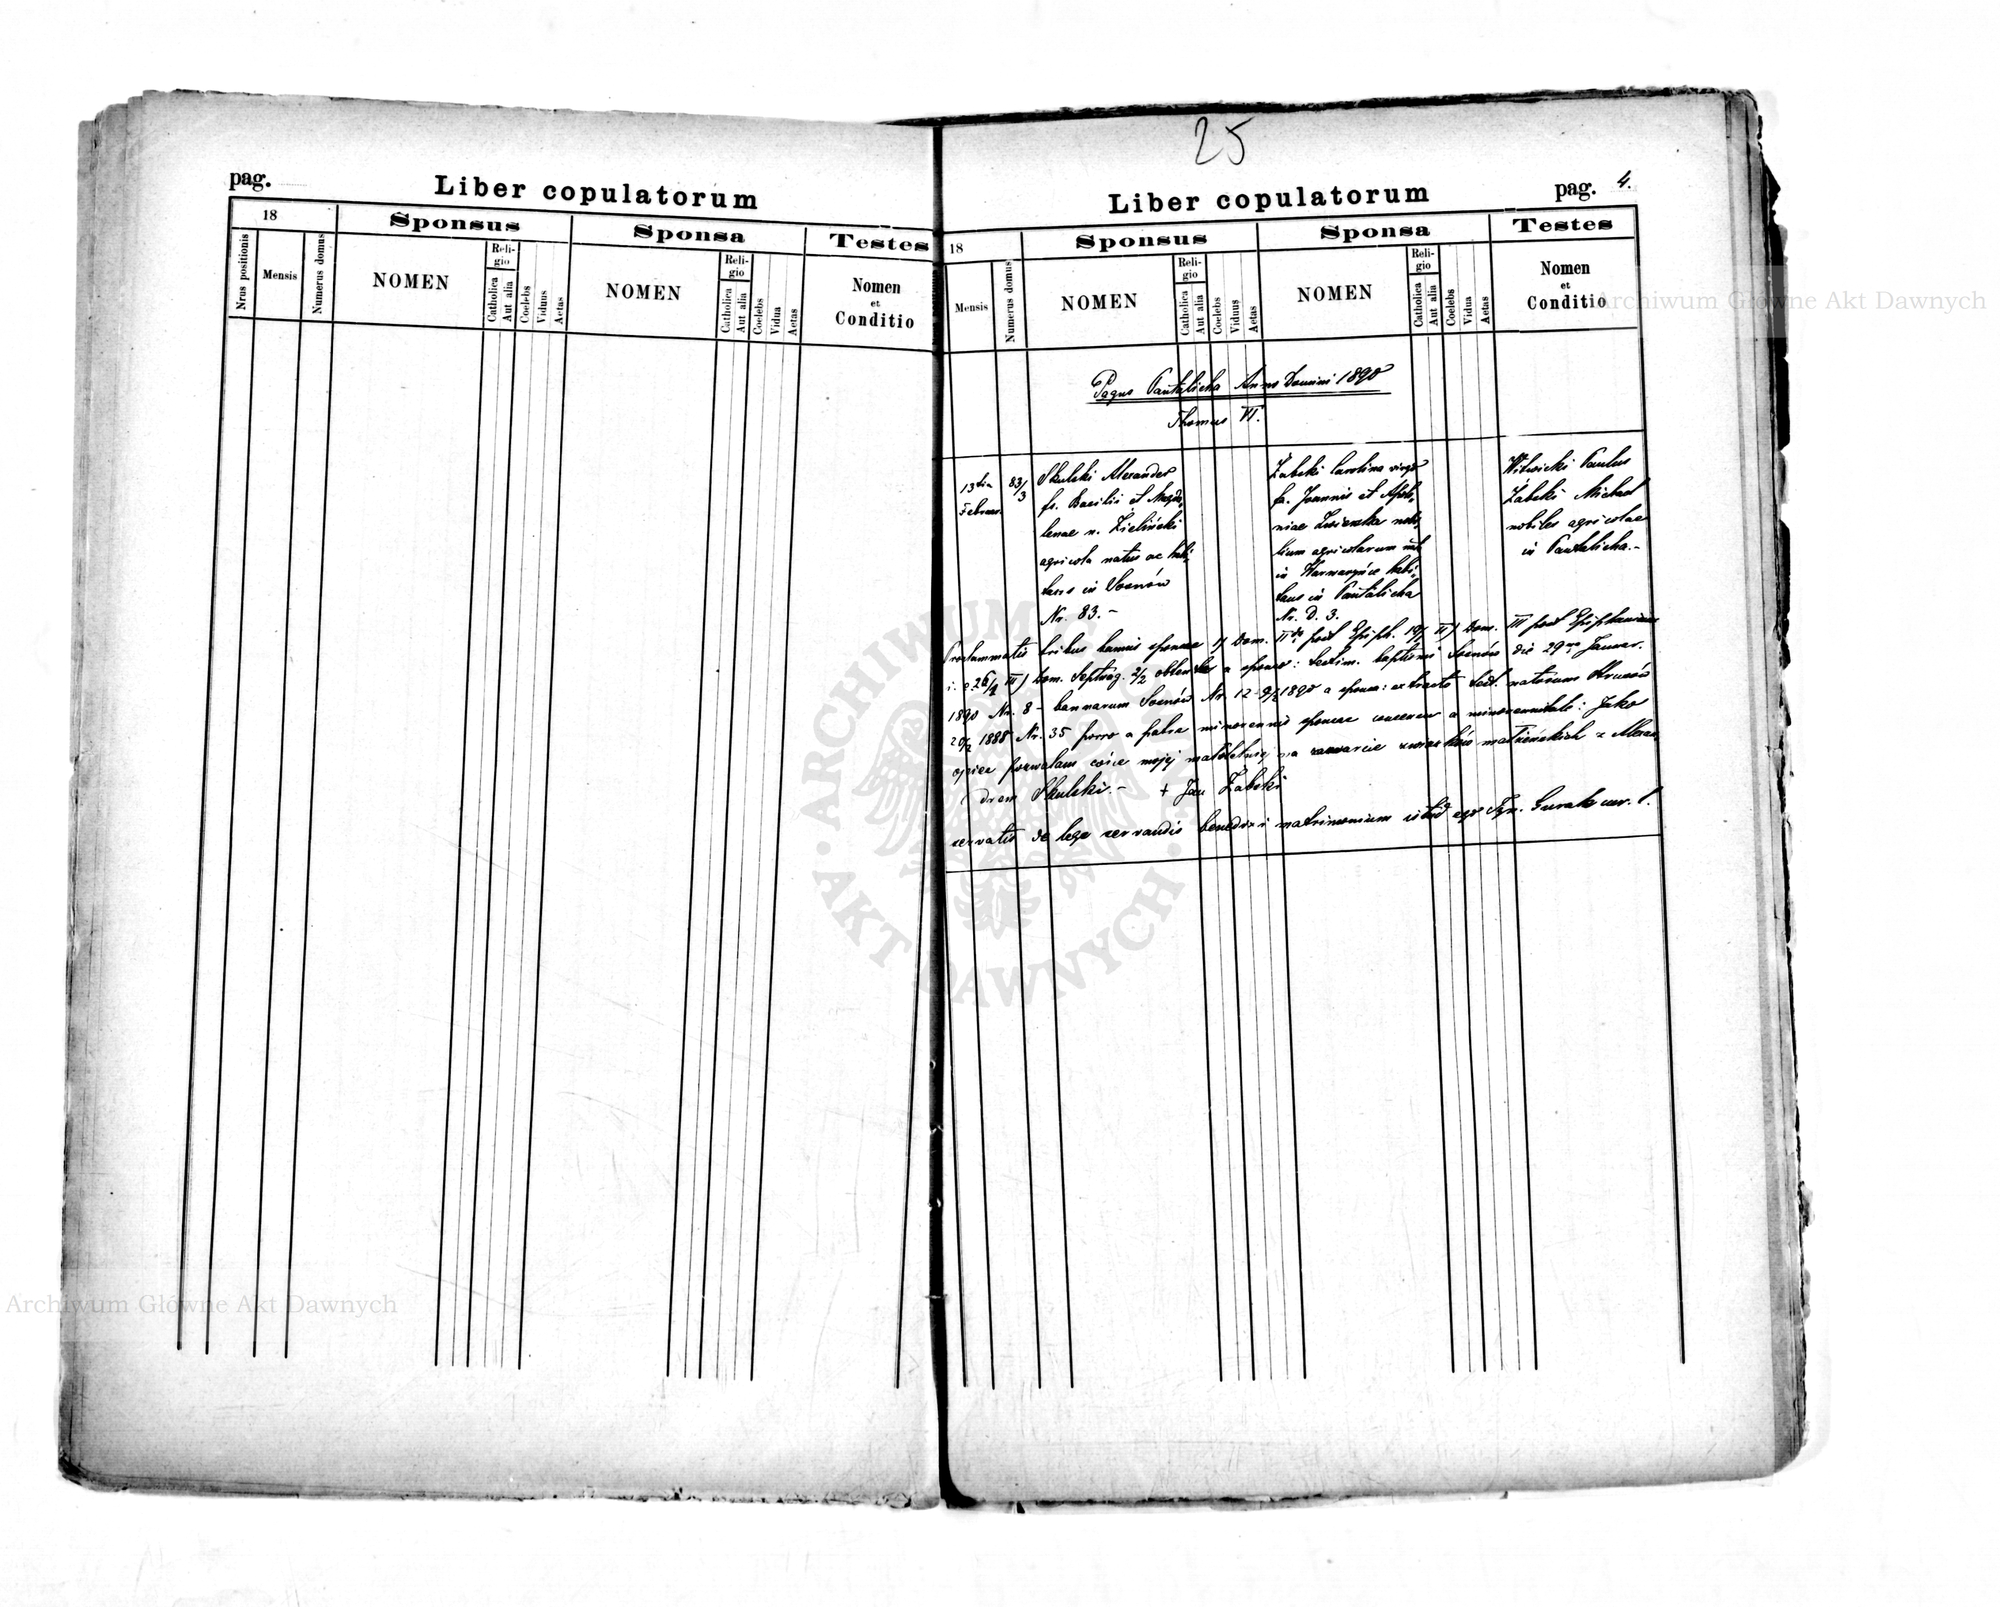 25
pag.
Liber copulatorum
18
Sponsus
Sponsa
Testes
Nrus positionis
Mensis
Numerus domus
NOMEN
Religio
Catholica
Aut alia
Coelebs
Viduus
Aetas
NOMEN
Religio
Catholica
Aut alia
Coelebs
Vidua
Aetas
Nomen
et
Conditio
Liber copulatorum
pag. 4.
18
Sponsus
Sponsa
Testes
Mensis
Numerus domus
NOMEN
Religio
Catholica
Aut alia
Coelebs
Viduus
Aetas
NOMEN
Religio
Catholica
Aut alia
Coelebs
Vidua
Aetas
Nomen
et
Conditio
Pagus Pantalicha Anno Domini 1890
Thomus VI.
13tia
Februar.
83/3
Skulski Alexander
fs. Basilii et Magda,
lenae n. Zieliński
agricola natus ac habi,
tans in Sosnów
Nr. 83. –
Żabski Carolina virgo
fa. Joannis et Apolo,
niae nobi,
lium agricolarum
in habi,
tans in Pantalicha
Nr. D. 3.
Witwicki Paulus
Żabski Michael
nobiles agricolae
in Pantalicha. –
tribus bannis sponsae 1) Dom. II post Epiph. 19/1 II) Dom. III post Epiphaniam
i. e 26/1 III) Dom. Septuag. 2/2 a sponso: testim. baptismi Sosnów die 29 Januar.
1890 Nr. 8 – bannorum Sosnów Nr. 12 1890 a sponsa: extracto natorum
1888 Nr. 35 porro a patre minorennis sponsae a minorennitate: Jako
ojciec pozwalam córce mojej małoletniej na zawarcie związków małżeńskich z Alexan,
drem Skulski. – + Jan Żabski
servatis de lege servandis benedixi matrimonium istud ego
ARCHIWUM GŁÓWNE · AKT DAWNYCH ·
Archiwum Główne Akt Dawnych
Archiwum Główne Akt Dawnych